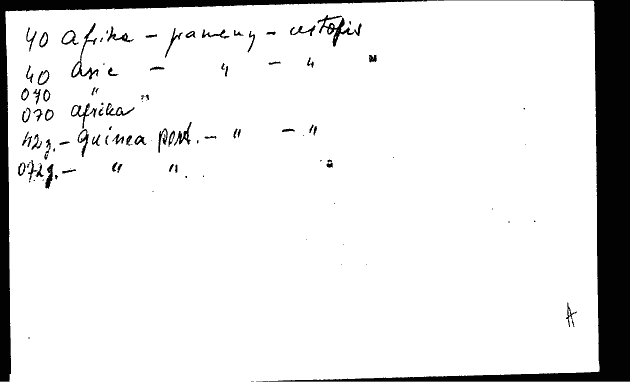 40 Afrika – prameny – cestopis
40 Asie – " – " "
070 "
070 Afrika "
42g. – Guinea port. – " – "
072g. – " ". "
A